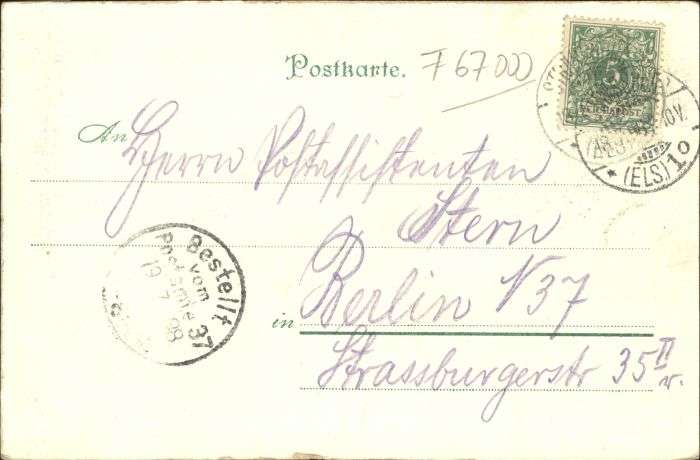 Postkarte. F 67000
5
REICHSPOST
(ELS) 10
An Herrn Postassistenten
Stern
in Berlin N 37
Strassburgerstr 35 II r.
Bestellt
vom
Postamte 37
19
7
98